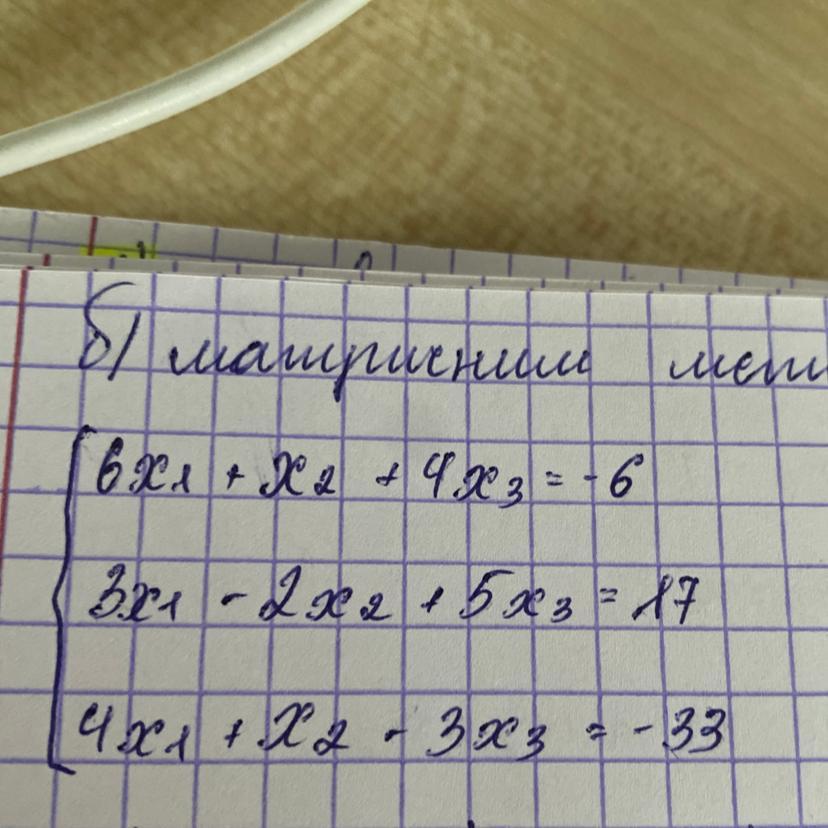 б) матричним
6x1 + x2 + 4x3 = -6
3x1 - 2x2 + 5x3 = 17
4x1 + x2 - 3x3 = -33